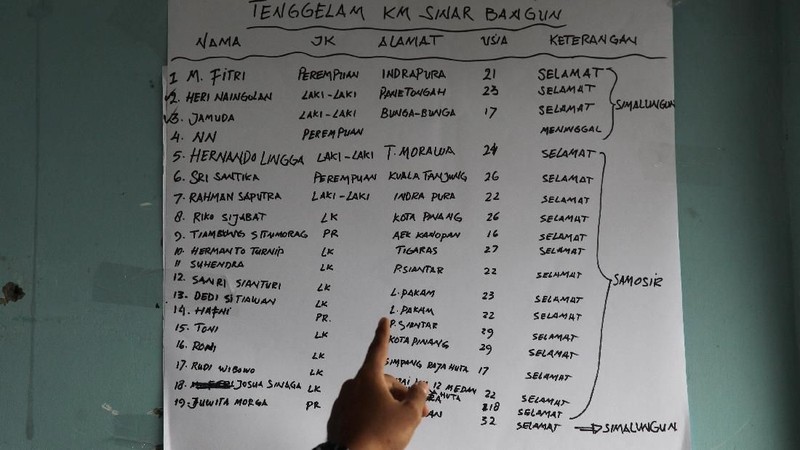 TENGGELAM KM SINAR BANGUN
NAMA JK ALAMAT USIA KETERANGAN
1 M. FITRI PEREMPUAN INDRAPURA 21 SELAMAT
2. HERI NAINGOLAN LAKI-LAKI PANETONGAH 23 SELAMAT
3. JAMUDA LAKI-LAKI BUNGA-BUNGA 17 SELAMAT
SIMALUNGUN
4. NN PEREMPUAN MENINGGAL
5. HERNANDO LINGGA LAKI-LAKI T. MORAWA 24 SELAMAT
6. SRI SANTIKA PEREMPUAN KUALA TANJUNG 26 SELAMAT
7. RAHMAN SAPUTRA LAKI-LAKI INDRA PURA 22 SELAMAT
8. RIKO SIJABAT LK KOTA PINANG 26 SELAMAT
9. TIAMBUNG SITUMORAG PR AEK KANOPAN 16 SELAMAT
10. HERMANTO TURNIP LK TIGARAS 27 SELAMAT
11 SUHENDRA LK P.SIANTAR 22 SELAMAT
SAMOSIR
12. SANRI SIANTURI LK L.PAKAM 23 SELAMAT
13. DEDI SITIAWAN LK L.PAKAM 22 SELAMAT
14. PR. P.SIANTAR 29 SELAMAT
15. TONI LK KOTA PINANG 29 SELAMAT
16. LK SIMPANG RAYA HUTA 17 SELAMAT
17. RUDI WIBOWO LK 12 MEDAN 22 SELAMAT
18. JOSUA SINAGA LK HUTA 18 SELAMAT
19. JUWITA MORGA PR 32 SELAMAT SIMALUNGUN